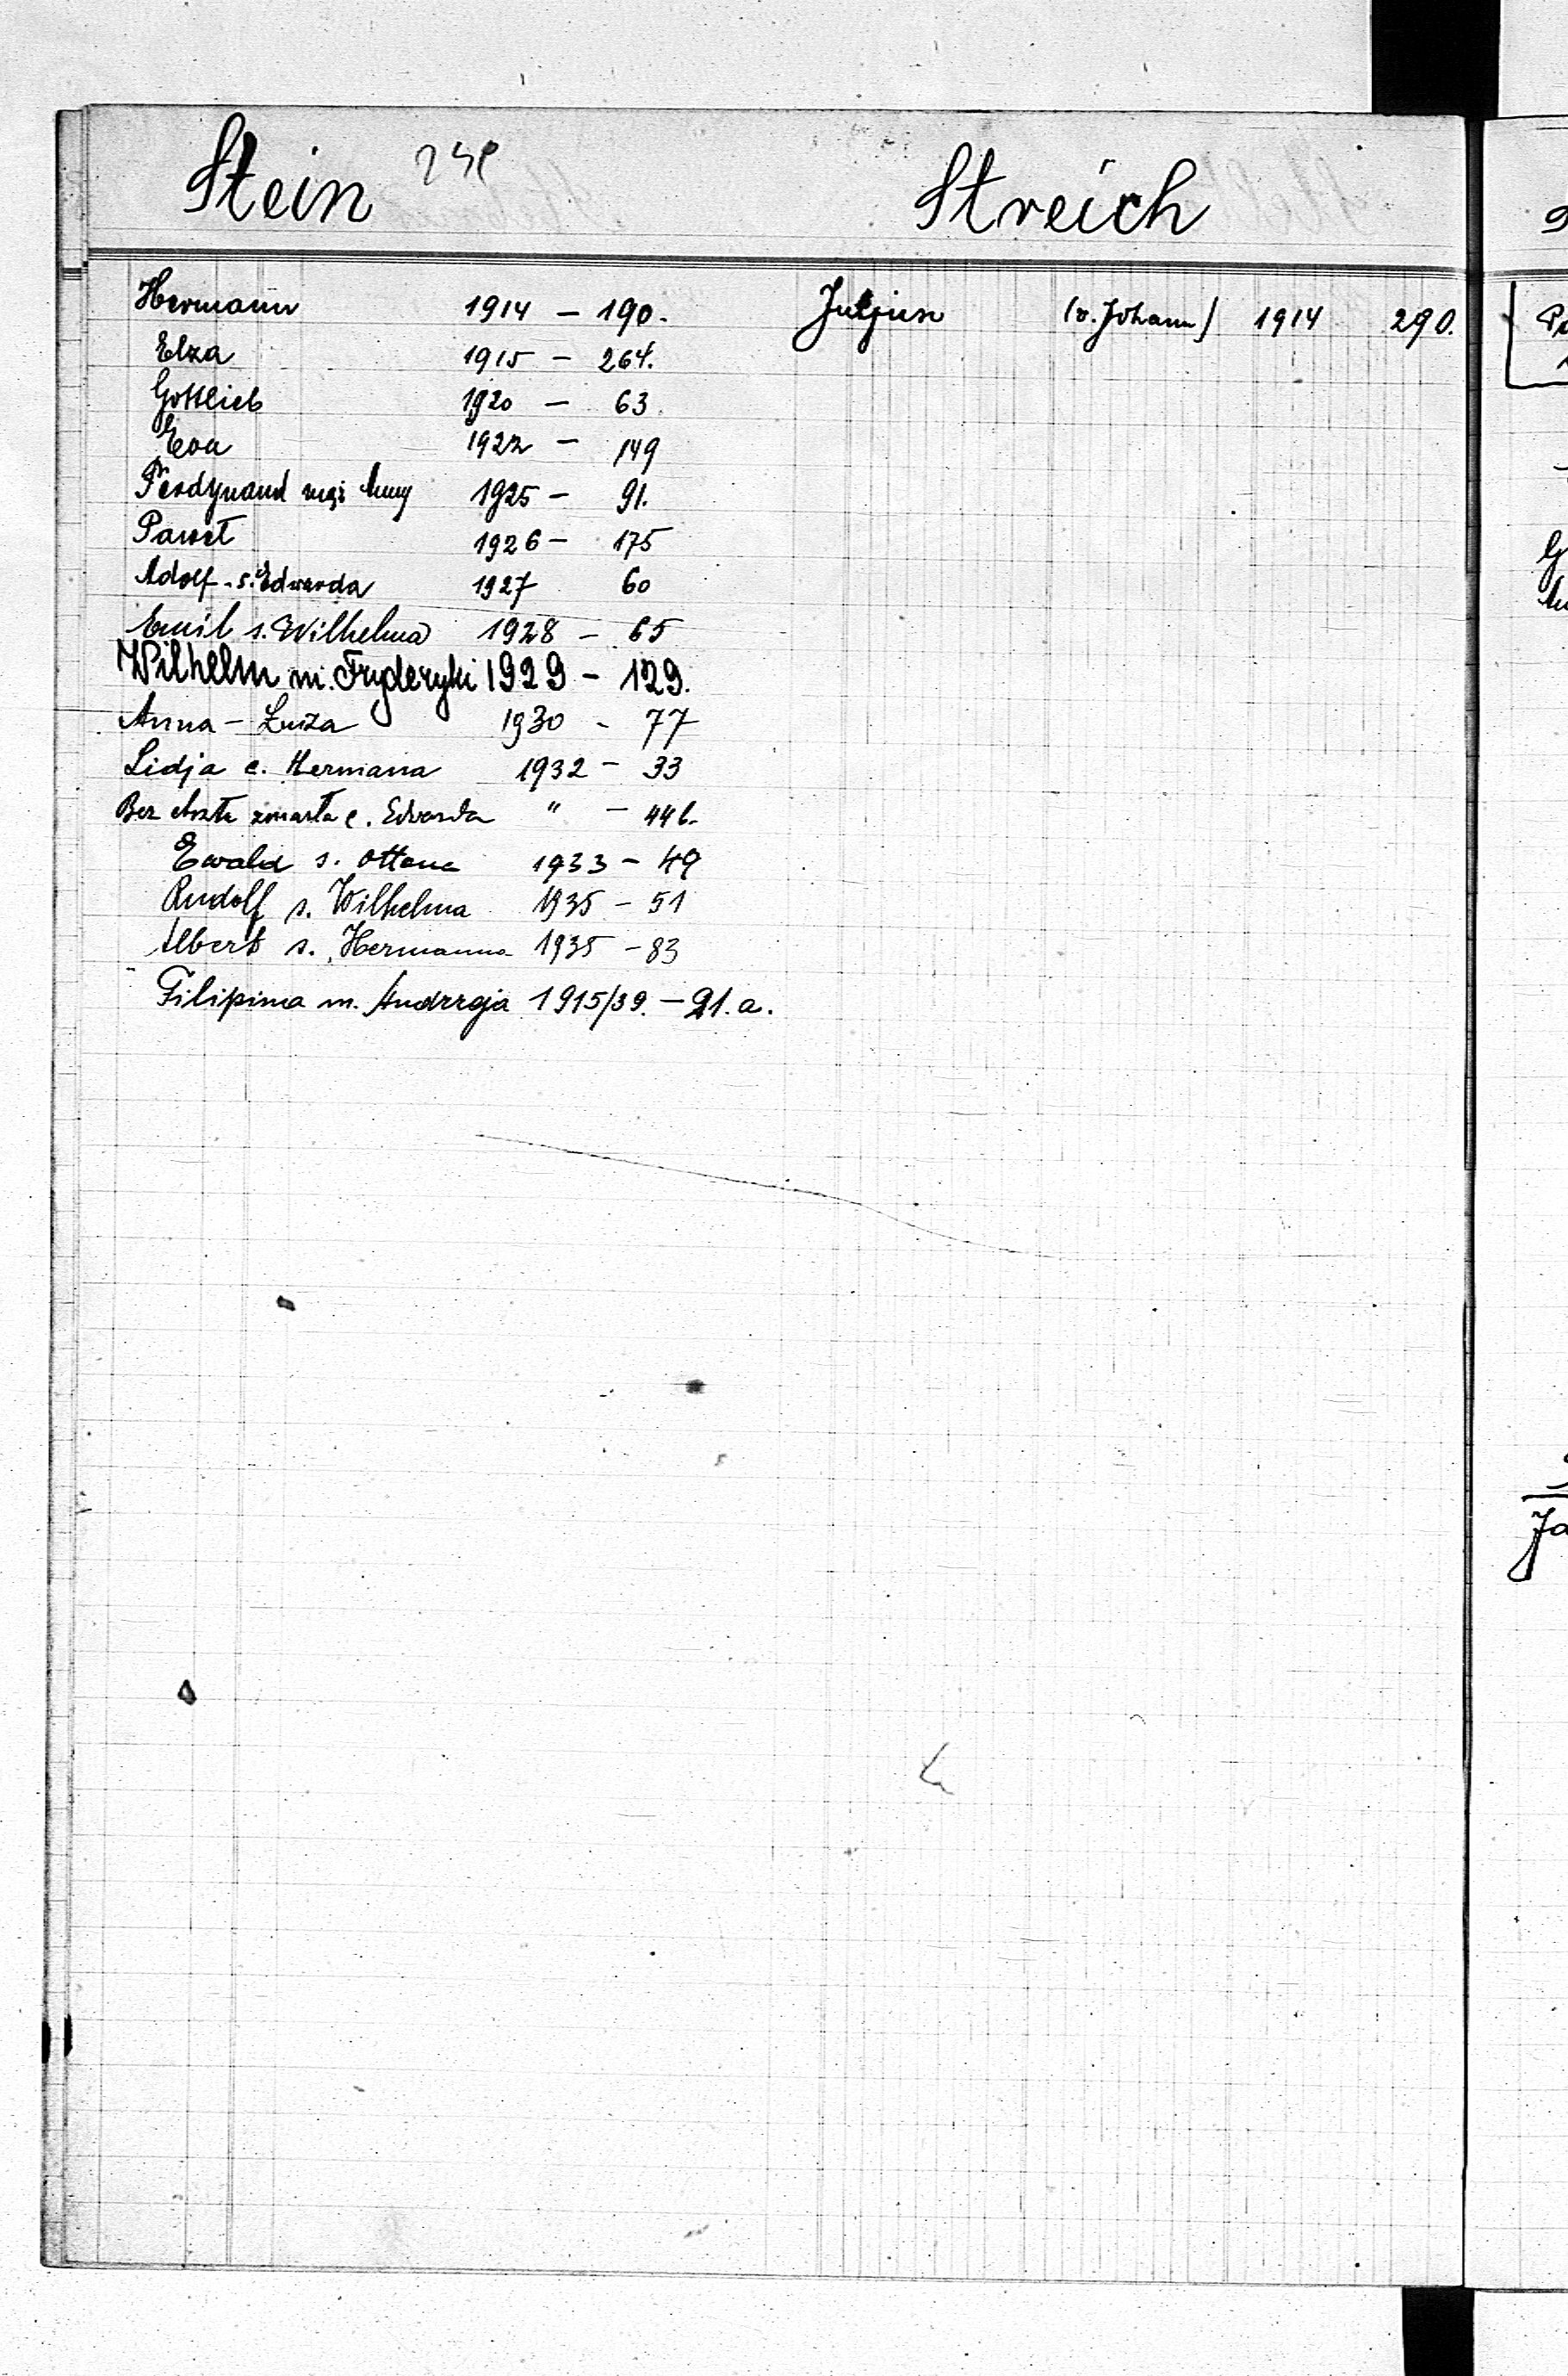 Stein
Streich
Hermann 1914 - 190.
Elza 1915 - 264.
Gottlieb 1920 - 63.
Eva 1922 - 149
Ferdynand mąż Anny 1925 - 91.
Paweł 1926 - 175
Adolf - s. Edwarda 1927 60
Emil s. Wilhelma 1928 - 65
Wilhelm m. Fryderyki 1929 - 129.
Anna - Luiza 1930 - 77
Lidja c. Hermana 1932 - 33
Bez chrztu zmarła c. Edwarda " - 446.
Ewald s. Ottona 1933 - 49
Rudolf s. Wilhelma 1935 - 51
Albert s. Hermanna 1935 - 83
Filipina m. Andrzeja 1915/39. - 21.a.
Juljusz (v. Johann) 1914 290.